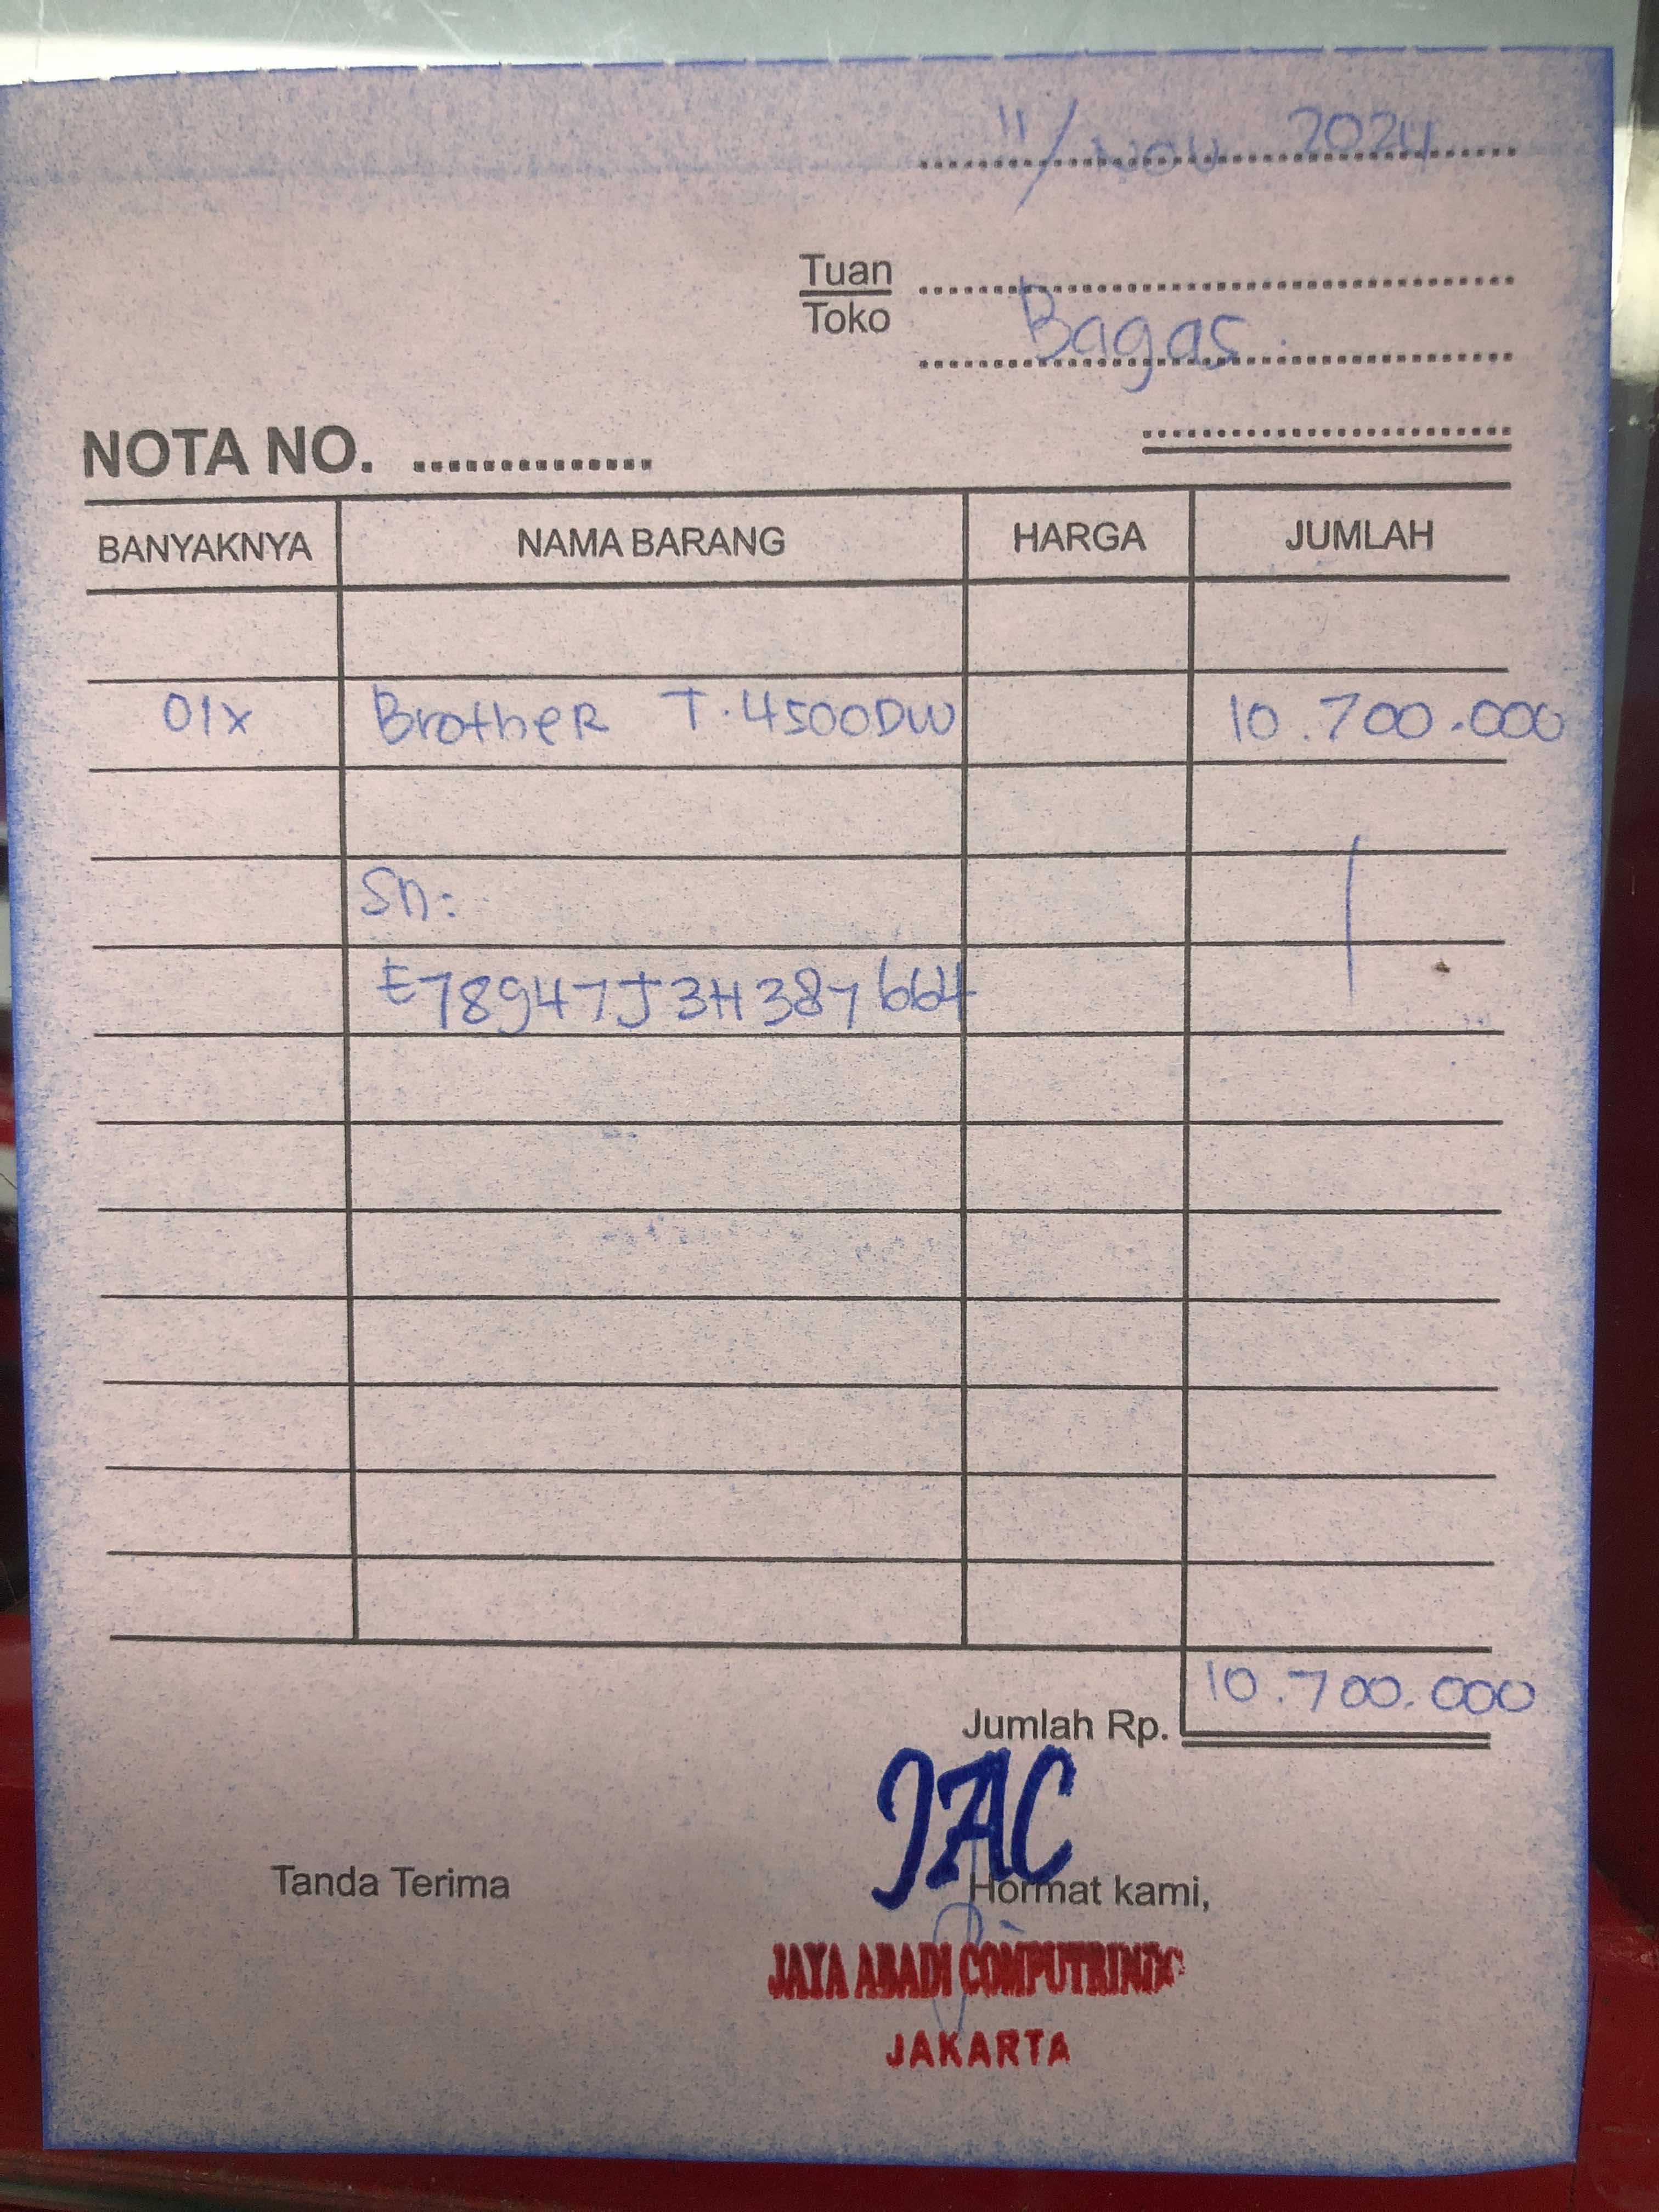 11/ Nov 2024
Tuan
Toko
Bagas.
NOTA NO.
BANYAKNYA NAMA BARANG HARGA JUMLAH
01x BrotheR T.4500DW 10.700.000
Sn:
E78947J3H387664
10.700.000
Jumlah Rp.
JAC
Tanda Terima Hormat kami,
JAYA ABADI COMPUTRINDO
JAKARTA